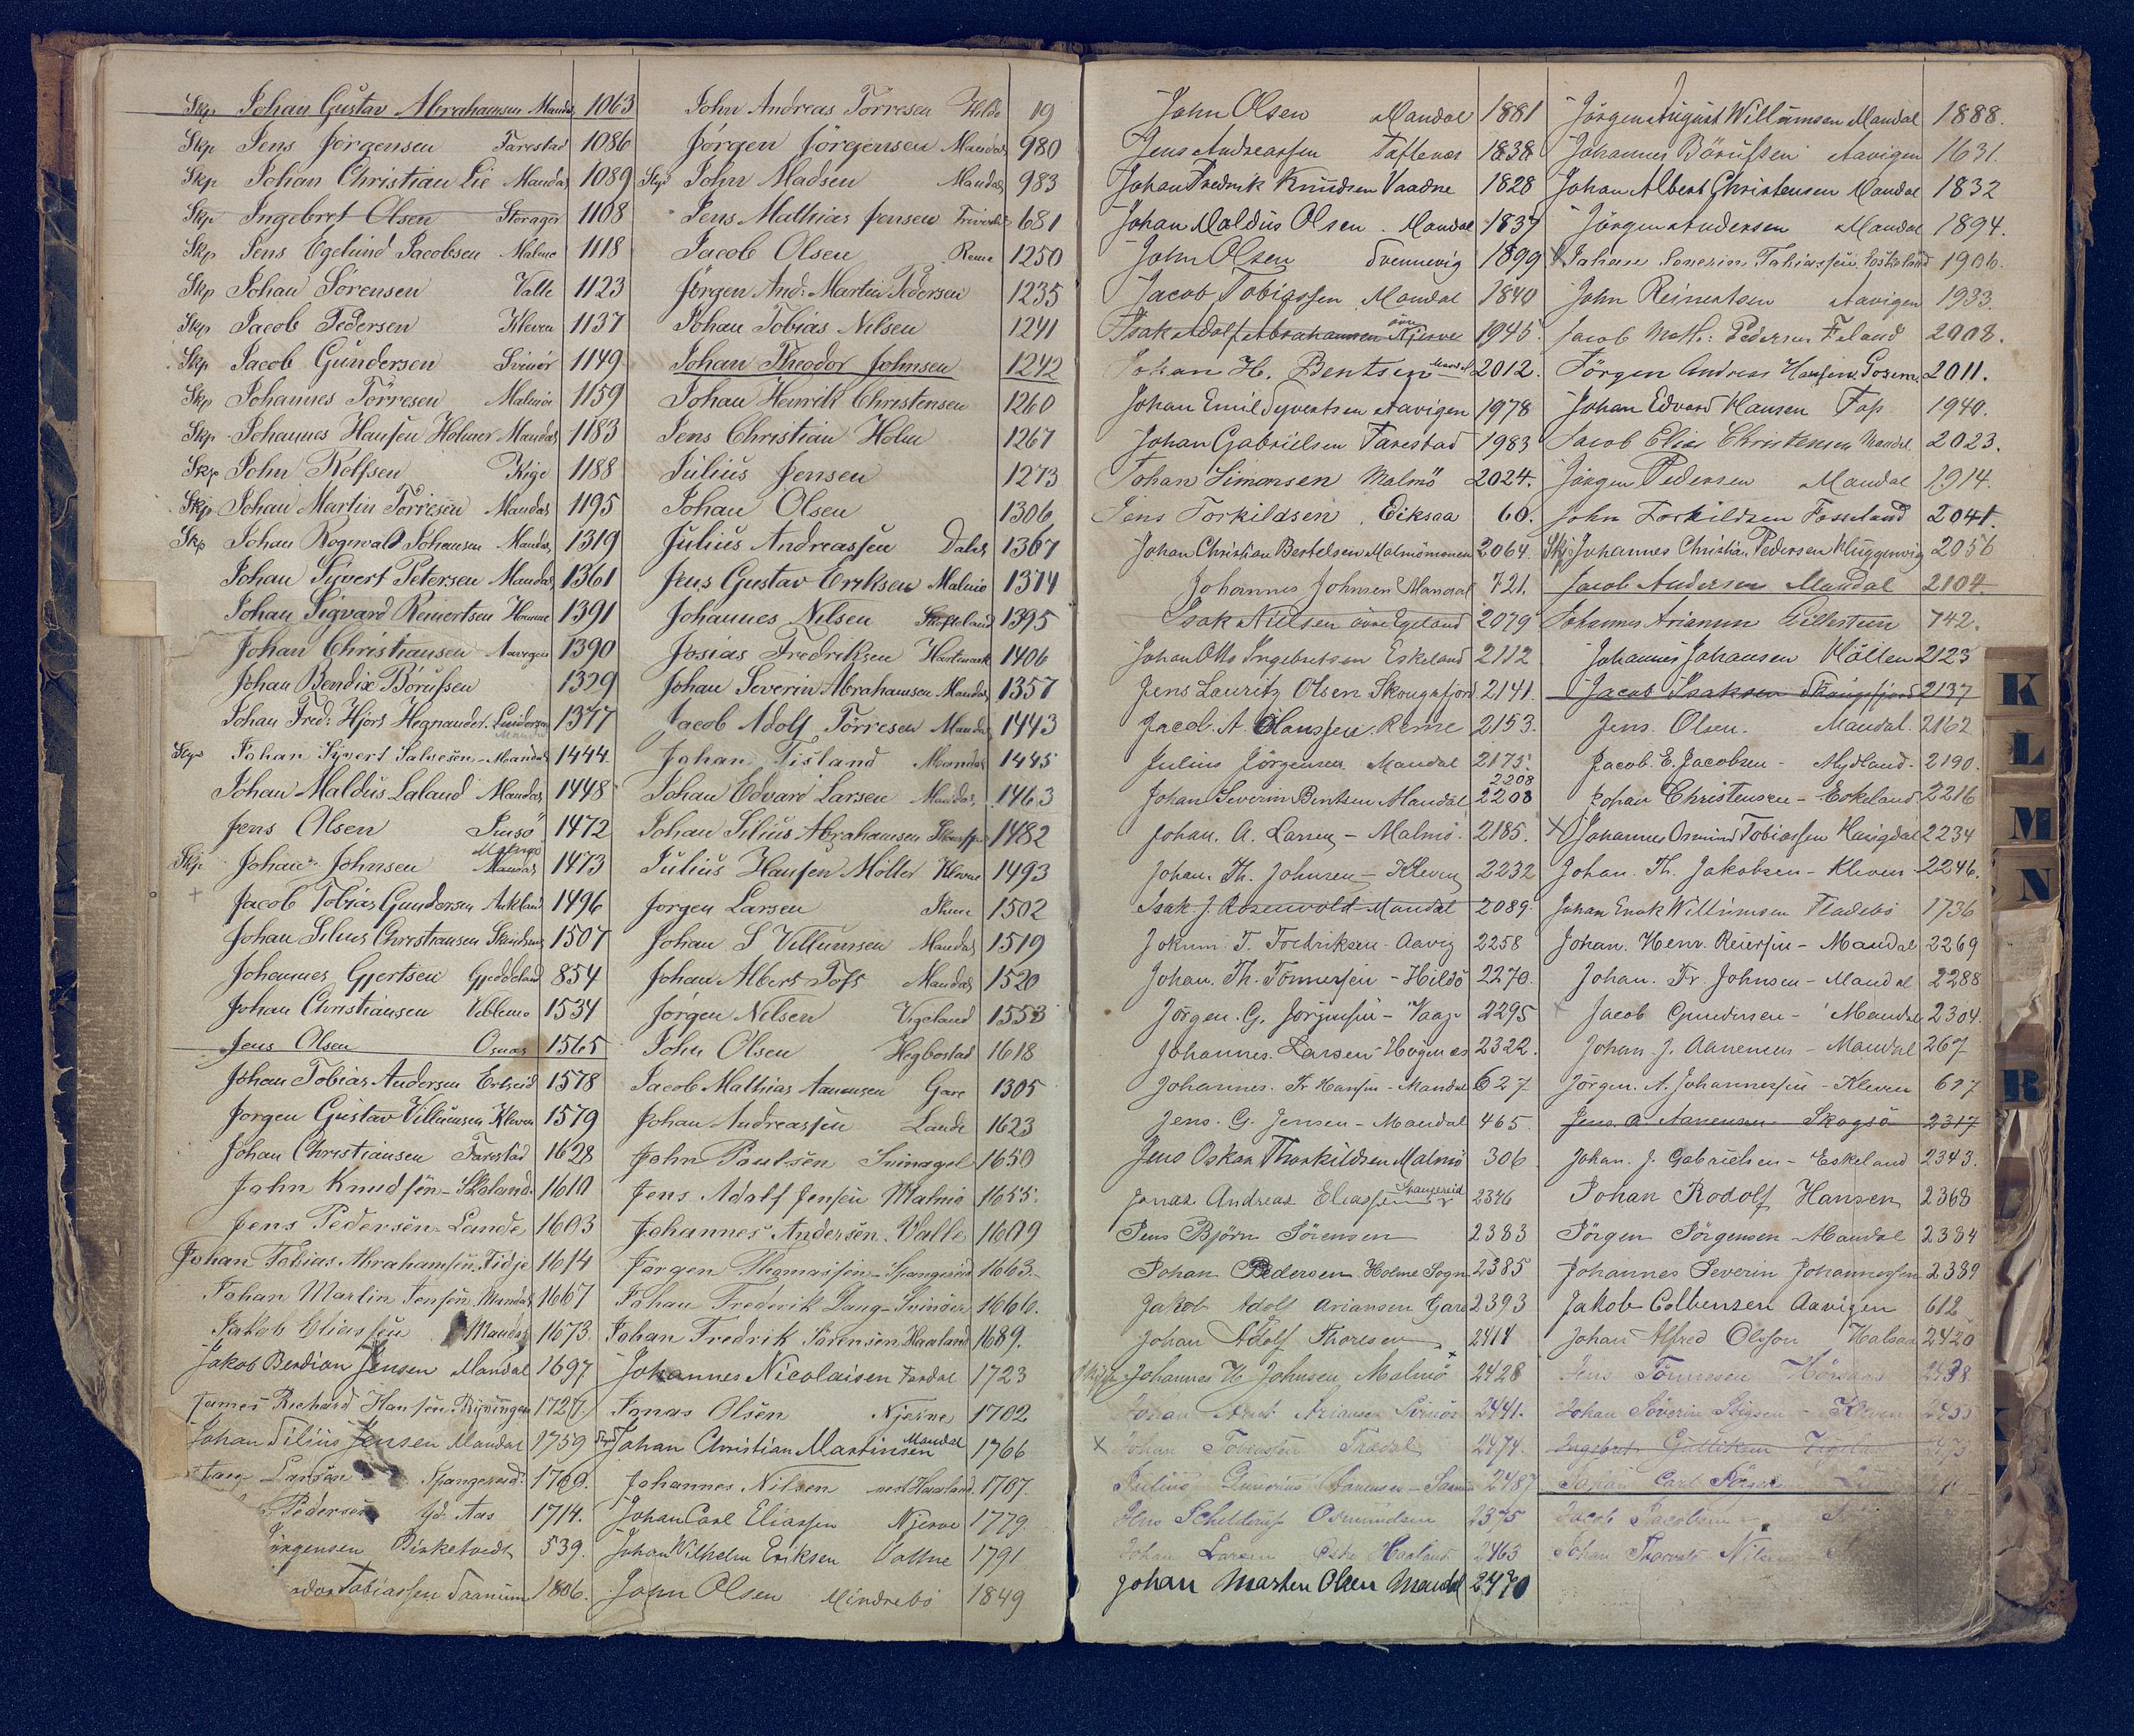 Skp Johan Gustav Abrahamsen Mandal 1063
Skp Jens Jørgensen Farestad 1086
Skp Johan Christian Lie Mandal 1089
Skp Ingebret Olsen 1108
Skp Jens Egelund Jacobsen Malmø 1118
Skp Johan Sørensen Valle 1123
Skp Jacob Pedersen Kleven 1137
Skp Jacob Gundersen Svinør 1149
Skp Johannes Tørresen Malmöe 1159
Skp Johannes Hansen Holmer Mandal 1183
Skp John Rolfsen Kige 1188
Skp Johan Martin Törresen Mandal 1195
Skp Johan Rognvald Johansen Mandal 1319
Johan Sivert Petersen Mandal 1361
Johan Sigvard Reinertsen Homme 1391
Johan Christiansen Aavigen 1390
Johan Bendix Börufsen 1329
Johan Fred: Hjort Hegnander 1377
Johan Syvert Salvesen Mandal 1444
Johan Maldus Laland Mandal 1448
Jens Olsen 1472
Skp Johan Johnsen Mandal 1473
Jacob Tobias Gundersen 1496
Johan Silius Christiansen 1507
Johannes Gjertsen Gjeddeland 854
Johan Christiansen 1534
Jens Olsen Osnas 1565
Johan Tobias Andersen Ertseid 1578
Jørgen Gustav Villumsen Kleven 1579
Johan Christiansen Farestad 1628
John Knudsen Skeland 1610
Jens Pedersen Lande 1603
Johan Tobias Abrahamsen Tidje 1614
Johan Martin Jensen Mandal 1667
Jakob Eliassen Mandal 1673
Jakob Berdian Jensen Mandal 1697
James Richard Hansen 1727
Johan Silius Jensen Mandal 1759
Larsen Spangereid 1769
Pedersen Yd: Aas 1714
Jørgensen Birketvedt 539
Tobiassen Traanum 1806
John Andreas Törresen Hilde 19
Jørgen Jörgensen Mandal 980
Skp John Madsen Mandal 983
Jens Mathias Jensen 681
Jacob Olsen Reme 1250
Jørgen And: Martin Pedersen 1235
Johan Tobias Nilsen 1241
Johan Theodor Johnsen 1242
Johan Henrik Christensen 1260
Jens Christian Holm 1267
Julius Jensen 1273
Johan Olsen 1306
Julius Andreassen 1367
Jens Gustav Eriksen Malmø 1374
Johannes Nilsen 1395
Josias Fredriksen Hartmark 1406
Johan Severin Abrahamsen Mandal 1357
Jacob Adolf Törresen Mandal 1443
Johan Tisland Mandal 1445
Johan Edvard Larsen Mandal 1463
Johan Silius Abrahamsen 1482
Julius Hansen Möller Kleven 1493
Jørgen Larsen 1502
Johan S Villumsen Mandal 1519
Johan Albert Foss Mandal 1520
Jørgen Nilsen Vigeland 1553
John Olsen Hegbostad 1618
Jacob Mathias Aanensen Gare 1305
Johan Andreassen Lande 1623
John Paulsen 1650
Jens Adolf Jensen Malmø 1655
Johannes Andersen Valle 1609
Jørgen Thomassen Spangereid 1663
Johan Frederik Svinöer 1666
Johan Fredrik Sørensen Haaland 1689
Johannes Nicolaisen 1723
Jonas Olsen Njerve 1702
Johan Christian Martinsen Mandal 1766
Johannes Nilsen Haaland 1707
Johan Carl Eliassen Njerve 1779
Johan Wilhelm Eriksen Vattne 1791
John Olsen Mindrebö 1849
John Olsen Mandal 1881
Jens Andreassen Taftenæs 1838
Johan Fredrik Knudsen Vaadne 1828
Johan Maldus Olsen Mandal 1837
John Olsen Svennevig 1899
Jacob Tobiassen Mandal 1840
Isak Adolf Abrahamsen øvre Njerve 1945
Johan H. Bentsen Mandal 2012
Johan Emil Syvertsen Aavigen 1978
Johan Gabrielsen Farestad 1983
Johan Simonsen Malmö 2024
Jens Torkildsen Eiksaa 60
Johan Christian Bertelsen Malmömonen 2064
Johannes Johnsen Mandal 721
Isak Nielsen övre Egeland 2079
Johan Otto Ingebretsen Eskeland 2112
Jens Lauritz Olsen Skougsfjord 2141
Jacob A. Hanssen Reme 2153
Julius Jörgensen Mandal 2175
2208
Johan Severin Bentsen Mandal 2208
Johan A. Larsen - Malmö 2185
Johan Th. Johnsen - Kleven 2232
Isak J. Rosenvold Mandal 2089
Jokum T. Fredriksen Aavig 2258
Johan Th. Tönnessen - Hildö 2270
Jörgen G. Jörgensen - Vaage 2295
Johannes Larsen - Högnæs 2322
Johannes Fr. Hansen - Mandal 627
Jens G. Jensen - Mandal 465
Jens Oskar Thorkildsen Malmö 306
Jonas Andreas Eliassen Spangereid 2346
Jens Björn Sörensen 2383
Johan Pedersen Holme Sogn 2385
Jakob Adolf Ariansen Gare 2393
Johan Adolf Thoresen 2414
Johannes H Johnsen Malmö 2428
Johan Arnt Ariansen Svinör 2441
x Johan Tobiassen 2474
Julius Gunerius Aanensen 2487
Jens Schelderup Osmundsen 2375
Johan Larsen Østre Haaland 2463
Johan Marten Olsen Mandal 2470
Jörgen August Willumsen Mandal 1888
Johannes Börufsen Aavigen 1631
Johan Albert Christensen Mandal 1832
Jörgen Andersen Mandal 1894
Johan Severin Tobiassen Eskeland 1906
John Reinertsen Aavigen 1933
Jacob Math: Pedersen Feland 2008
Jörgen Andreas Hansen 2011
Johan Edvard Hansen Foss 1940
Jacob Elias Christensen Mandal 2023
Jörgen Pedersen Mandal 1914
John Torkildsen Fosseland 2041
Skp Johannes Christian Pedersen 2056
Jacob Andersen Mandal 2104
Johannes 742
Johannes Johansen Hölten 2123
Jacob Isaksen Skougsfjord 2137
Jens Olsen Mandal 2162
Jacob E. Jacobsen - Mydland 2190
Johan Christensen - Eskeland 2216
x Johannes Osmund Tobiassen Haugdal 2234
Johan Th. Jakobsen - Kleven 2246
Johan Enok Willumsen Fladebö 1736
Johan Henr. Reiersen - Mandal 2269
Johan Fr. Johnsen - Mandal 2288
Jacob Gundersen - Mandal 2304
Johan J. Aanensen - Mandal 267
Jörgen A. Johannessen - Kleven 617
Jens A. Aanensen Skogsö 2317
Johan J. Gabrielsen - Eskeland 2343
Johan Rodolf Hansen 2368
Jörgen Jörgensen Mandal 2384
Johannes Severin Johannessen 2389
Jakob Colbensen Aavigen 612
Johan Alfred Olsson Halsaa 2420
Jens Tönnesen 2438
Johan Severin Stigsen - Kleven
Ingebret Gulliksen
Johan Carl
Jacob Jacobsen
Johan Thorvald Nilsen
K
L
M
N
R